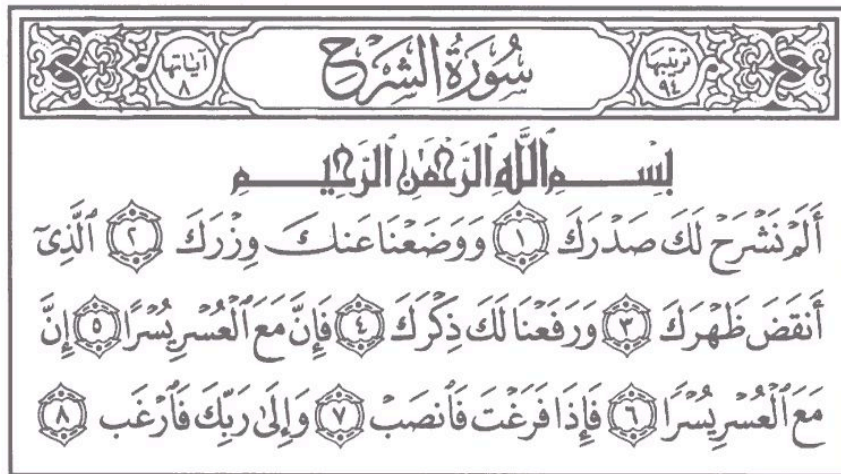 ترتيبها ٩٤
سُورَةُ الشَّرْحِ
آياتها ٨
بِسْمِ ٱللَّهِ ٱلرَّحْمَٰنِ ٱلرَّحِيمِ
أَلَمْ نَشْرَحْ لَكَ صَدْرَكَ ١ وَوَضَعْنَا عَنكَ وِزْرَكَ ٢ ٱلَّذِىٓ
أَنقَضَ ظَهْرَكَ ٣ وَرَفَعْنَا لَكَ ذِكْرَكَ ٤ فَإِنَّ مَعَ ٱلْعُسْرِ يُسْرًا ٥ إِنَّ
مَعَ ٱلْعُسْرِ يُسْرًا ٦ فَإِذَا فَرَغْتَ فَٱنصَبْ ٧ وَإِلَىٰ رَبِّكَ فَٱرْغَب ٨